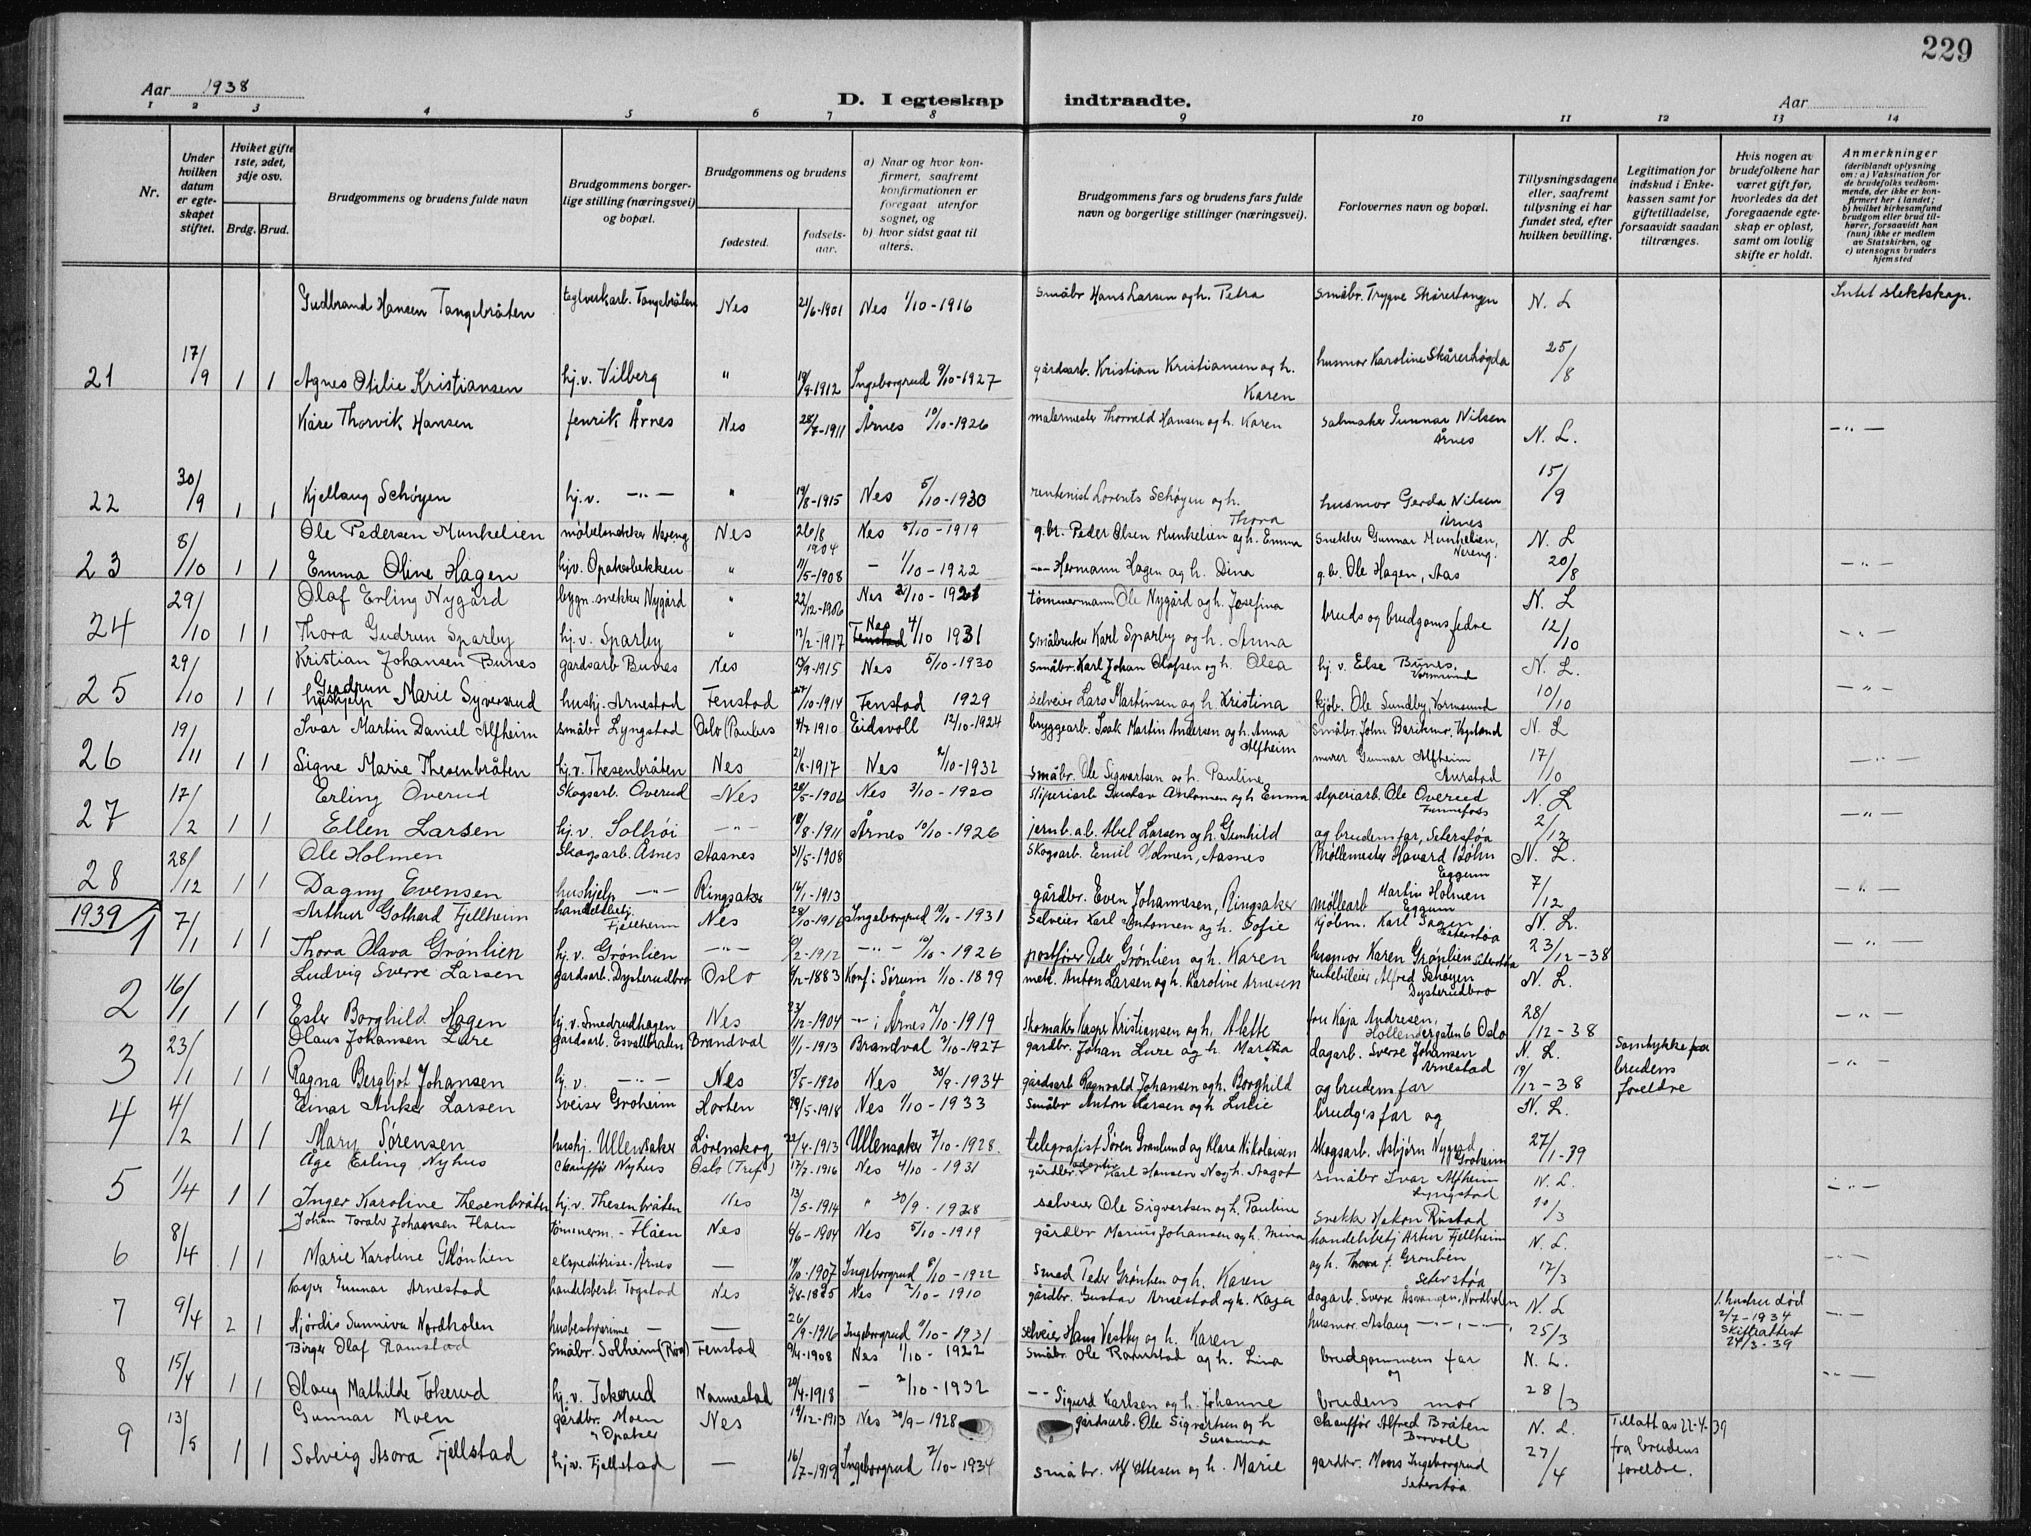 229
Aar 1938
D. I egteskap indtraadte.
Aar
1 2 3 4 5 6 7 8 9 10 11 12 13 14
Nr.
Under hvilken datum er egteskapet stiftet.
Hviket gifte 1ste, 2det, 3dje osv.
Brdg. Brud.
Brudgommens og brudens fulde navn
Brudgommens borgerlige stilling (næringsvei) og bopæl.
Brudgommens og brudens
fødested.
fødselsaar.
a) Naar og hvor konfirmert, saafremt konfirmationen er foregaat utenfor sognet, og
b) hvor sidst gaat til alters.
Brudgommens fars og brudens fars fulde navn og borgerlige stillinger (næringsvei).
Forlovernes navn og bopæl.
Tillysningsdagene eller, saafremt tillysning ei har fundet sted, efter hvilken bevilling.
Legitimation for indskud i Enkekassen samt for giftetilladelse, forsaavidt saadan tiltrænges.
Hvis nogen av brudefolkene har været gift før, hvorledes da det foregaaende egteskap er opløst, samt om lovlig skifte er holdt.
Anmerkninger
(deriblandt oplysning om: a) Vaksination for de brudefolks vedkommende, der ikke er konfirmert her i landet; b) hvilket kirkesamfund brudgom eller brud tilhører, forsaavidt han (hun) ikke er medlem av Statskirken, og c) utensogns bruders hjemsted
Gudbrand Hansen Tangebråten teglverkarb. Tangebråten Nes 21/6-1901 Nes 1/10-1916 småbr Hans Larsen og h. Petra småbr. Trygve Skårertangen N. L Intet slektskap.
21 17/9 1 1 Agnes Otilie Kristiansen hj.v. Vilberg " 19/9-1912 Ingeborgrud 9/10-1927 gårdsarb. Kristian Kristiansen og h. Karen husmor Karoline Skårerhøgda 25/8
Kåre Thorvik Hansen fenrik Årnes Nes 28/7-1911 Årnes 10/10-1926 malermester Thorvald Hansen og h. Karen salmaker Gunnar Nilsen Årnes N. L. -"-
22 30/9 1 1 Kjellaug Schøyen hj.v. -"- " 19/8-1915 Nes 5/10-1930 rentenist Lorents Schøyen og h. Thora husmor Gerda Nilsen Årnes 15/9
Ole Pedersen Munkelien møbelsnekker Nereng Nes 26/8 1904 Nes 5/10-1919 g.br. Peder Olsen Munkelien og h. Emma snekker Gunnar Munkelien, Nereng. N. L
23 8/10 1 1 Emma Oline Hagen hjv. Opakerbekken " 11/5-1908 - 1/10-1922 -"- Hermann Hagen og h. Dina g.br. Ole Hagen, Aas 20/8 -"-
Olaf Erling Nygård bygn.snekker Nygård " 22/12-1906 Nes /10-1921 tømmermann Ole Nygård og h. Josefina bruds og brudgoms fedre N. L
24 29/10 1 1 Thora Gudrun Sparby hj.v. Sparby " 12/2-1917 Nes 4/10 1931 småbruker Karl Sparby og h. Anna 12/10 -"-
Kristian Johansen Bunes gardsarb Bunes Nes 13/9-1915 Nes 5/10-1930 småbr. Karl Johan Olafsen og h. Olea hj. v. Else Bunes, Vormsund N. L.
25 29/10 1 1 Gudrun Marie Syversrud hushj. Arnestad Fenstad 27/10-1914 Fenstad 1929 selveier Lars Martinsen og h. Kristina kjøb. Ole Sundby, Vormsund 10/10 -"-
Ivar Martin Daniel Alfheim småbr Lyngstad Oslo (Paulus 4/7 1910 Eidsvoll 12/10-1924 bryggearb. Isak Martin Andersen og h. Anna Alfheim småbr. John N. L
26 19/11 1 1 Signe Marie Thesenbråten hj.v. Thesenbråten Nes 21/8-1917 Nes 2/10-1932 småbr. Ole Sigvartsen og h. Pauline murer Gunnar Alfheim Aurstad 17/10 -"-
Erling Overud Skogsarb. Overud Nes 28/5-1906 Nes 3/10-1920 sliperiarb Gustav Antonsen og h Emma sliperiarb. Ole Overud Funnefoss N. L
27 17/2 1 1 Ellen Larsen hj.v. Solhøi -"- 18/8-1911 Årnes 10/10-1926 jernb.a.b. Abel Larsen og h. Gunhild og brudens far, Seterstøa 2/12 -"-
Ole Holmen Skogsarb. Åsnes Aasnes 31/5-1908 Skogsarb. Emil Holmen, Aasnes Møllemester Havard Bøhn Eggum N. L.
28 28/12 1 1 Dagny Evensen hushjelp -"- Ringsaker 14/1-1913 gårdbr. Even Johannesen, Ringsaker møllearb Martin Holmen Eggum 7/12 -"-
1939
Arthur Gothard Fjellheim handelsbetj. Fjellheim Nes 28/10-1916 Ingeborgrud 11/10-1931 selveier Karl Antonsen og h. Sofie kjøbm. Karl Sagen Seterstøa N. L.
1 7/1 1 1 Thora Olava Grønlien hj.v. Grønlien -"- 10/2-1912 -"- 10/10-1926 postfører Peder Grønlien og h. Karen husmor Karen Grønlien Seterstøa 23/12-38 -"-
Ludvig Sverre Larsen gardsarb. Dysterudbro Oslo 6/12-1883 Konf. i Sørum 1/10-1899 mek. Anton Larsen og h. Karoline Arnesen rutebileier Alfred Schøyen Dysterudbro N. L.
2 16/1 1 1 Ester Borghild Hagen hj.v. Smedrudhagen Nes 23/12-1904 -"- i Årnes 12/10-1919 Skomaker Kasper Kristiansen og h. Alette fru Kaja Andresen, Hollendergaten 6 Oslo 28/12-38 -"-
Olaus Johansen Lure gardsarb. Esvallbråten Brandval 11/1-1913 Brandval 2/10-1927 gårdbr. Johan Lure og h. Martha dagarb. Sverre Johansen Arnestad N. L. Samtykke fra brudens foreldre
3 23/1 1 1 Ragna Bergljot Johansen hj. v. -"- Nes 15/5-1920 Nes 30/9-1934 gårdsarb Ragnvald Johansen og h. Borghild og brudens far 19/12-38 -"-
Einar Anker Larsen sveiser Groheim Horten 29/5-1918 Nes 1/10-1933 småbr Anton Larsen og h Lucie brudg's far og N. L.
4 4/2 1 1 Mary Sørensen hushj. Ullensaker Lørenskog 22/4-1913 Ullensaker 7/10-1928. telegrafist Søren Granlund og Klara Nikolaisen skogsarb. Asbjørn Nygård Groheim 27/1-39
Åge Erling Nyhus chauffør Nyhus Oslo (Tref.) 17/7-1916 Nes 4/10-1931 gårdbr. adoptiv Karl Hansen N og h. Aagot småbr Ivar Alfheim Lyngstad N. L.
5 1/4 1 1 Inger Karoline Thesenbråten hj.v. Thesenbråten Nes 13/5-1914 " 30/9-1928 selveier Ole Sigvartsen og h. Pauline snekker Håkon Rustad 10/3 -"-
Johan Toralv Johansen Haen tømmerm. - Håen Nes 6/6-1904 Nes 5/10-1919 gårdbr Marius Johansen og h. Mina handelsbetj Artur Fjellheim N. L.
6 8/4 1 1 Marie Karoline Grønlien ekspeditrise. Årnes - 19/10-1907 Ingeborgrud 8/10-1922 smed Peder Grønlien og h. Karen og h. Thora f. Grønlien Seterstøa 17/3 -"-
Kasper Gunnar Arnestad handelsbest. Togstad Nes 5/8-1895 Nes 2/10-1910 gårdbr. Gustav Arnestad og h. Kaja dagarb. Sverre Åsvangen, Nordholen N. L 1. hustru død 2/7-1934 Skifteattest 24/3-39
7 9/4 2 1 Hjørdis Sunniva Nordholen husbestyrerinne - - 26/9-1916 Ingeborgrud 11/10-1931 selveier Hans Vestby og h. Karen husmor. Aslaug -"- 25/3 -"-
Birger Olaf Ramstad småbr. Solheim Fenstad 9/4-1908 Nes 1/10-1922 småbr. Ole Ramstad og h. Lina brudgommens far og N. L.
8 15/4 1 1 Olaug Mathilde Tokerud hj.v. Tokerud Nannestad 20/4-1918 - 2/10-1932 -"- Sigurd Karlsen og h. Johanne brudens mor 28/3 -"-
Gunnar Moen gårdbr. Moen v Opaker Nes 19/12-1913 Nes 30/9-1928 gårdsarb. Ole Sigvartsen og h Susanna chauffør Alfred Bråten Brovoll N. L. Tillatt av 22-4-39 fra brudens foreldre.
9 13/5 1 1 Solveig Asora Fjellstad hj.v. Fjellstad - 16/7-1919 Ingeborgrud 7/10-1934 småbr. Alf Ottesen og h. Marie gardbr. Mons Ingeborgrud Seterstøa 27/4